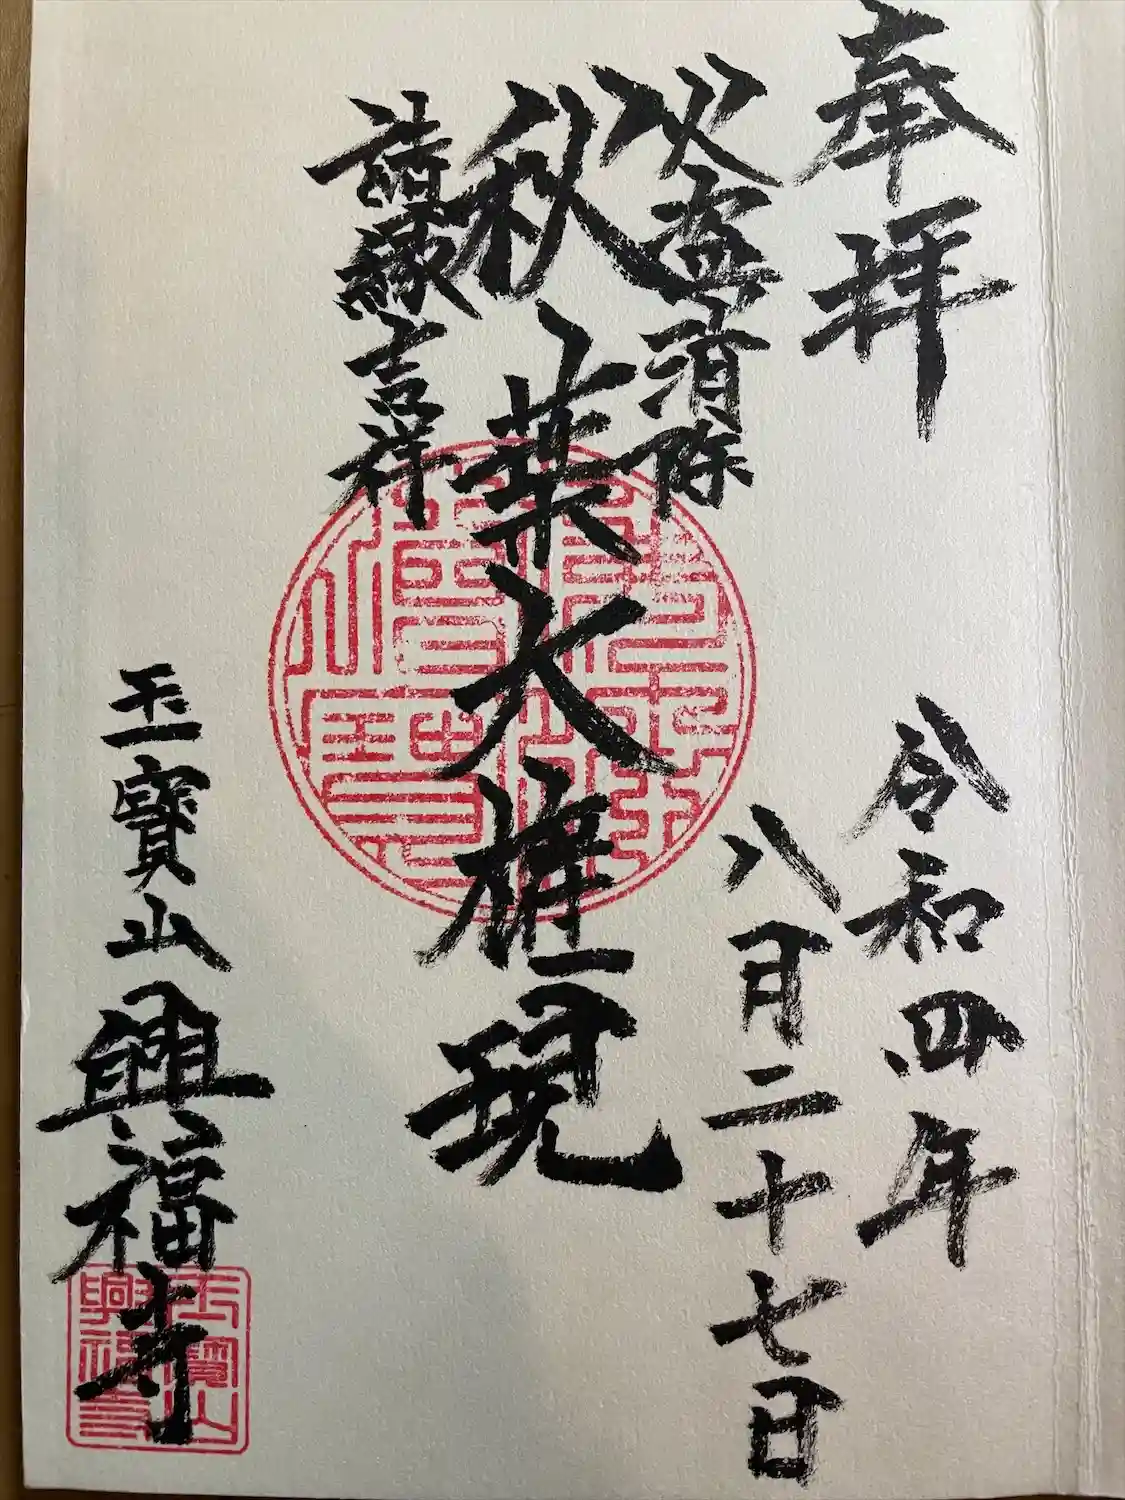 奉拝
令和四年
八月二十七日
火盗消除
秋葉大権現
諸縁吉祥
玉寶山
興福寺
玉寶山
興福寺